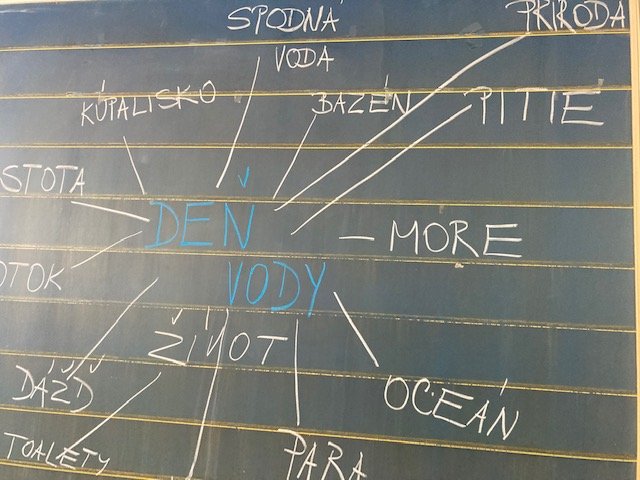 SPODNÁ
VODA
PRÍRODA
KÚPALISKO
BAZÉN
PITIE
STOTA
DEŇ
VODY
MORE
OTOK
ŽIVOT
DÁŽĎ
OCEÁN
TOALETY
PARA